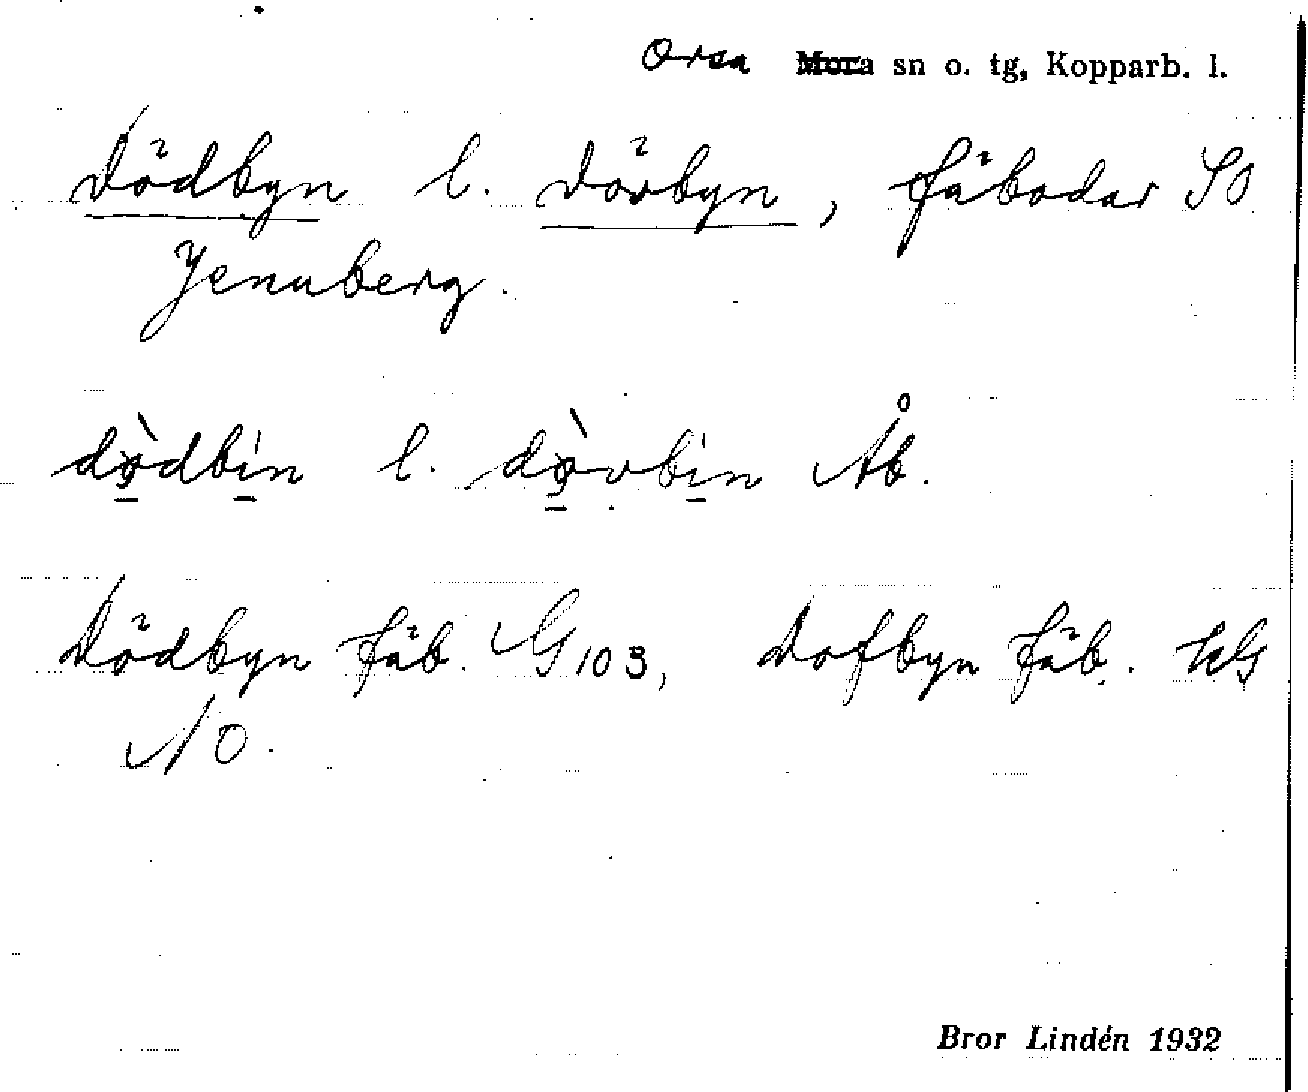 Orsa Mora sn o. tg, Kopparb. l.
Dödbyn l. Dövbyn, fäbodar SO
Jennberg.
dò̱dbi̱n l. dò̱vbi̱n Åb.
Dödbyn fäb. G 103, Dofbyn fäb. KG
NO.
Bror Lindén 1932